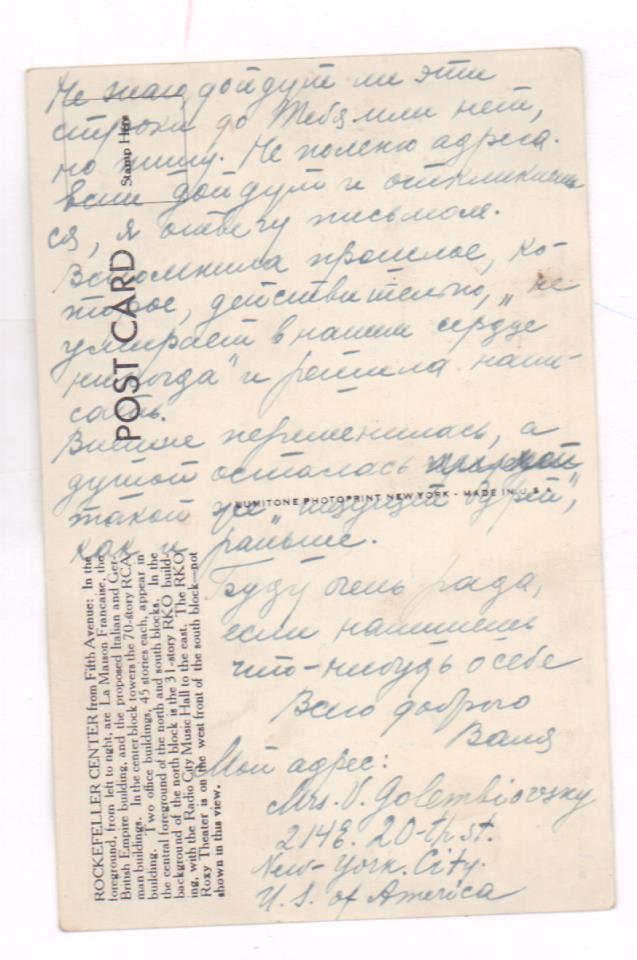 Не знаю дойдут ли эти
строки до Тебя или нет,
но пишу. Не полекю адреса.
Если дойдут и откликнешь
ся, я отвечу письмом.
Вспомнила прошлое, ко-
торое, действительно, „не
умирает в нашем сердце
никогда" и решила напи-
сать.
Внешне переменилась, а
душой осталась
такой же „ищущей бурей",
как и раньше.
Буду очень рада,
если напишешь
что-нибудь о себе
Всего доброго
Валя
Мой адрес:
Mrs. V. Golembiovsky
214 E. 20-th st.
New-York. City.
U.S. of America
Stamp Here
POST CARD
LUMITONE PHOTOPRINT NEW YORK - MADE IN U.S.A.
ROCKEFELLER CENTER from Fifth Avenue: In the
foreground, from left to right, are La Maison Francaise, the
British Empire building, and the proposed Italian and Ger-
man buildings. In the center block towers the 70-story RCA
building. Two office buildings, 45 stories each, appear in
the central foreground of the north and south blocks. In the
background of the north block is the 31-story RKO build-
ing, with the Radio City Music Hall to the east. The RKO
Roxy Theater is on the west front of the south block—not
shown in this view.